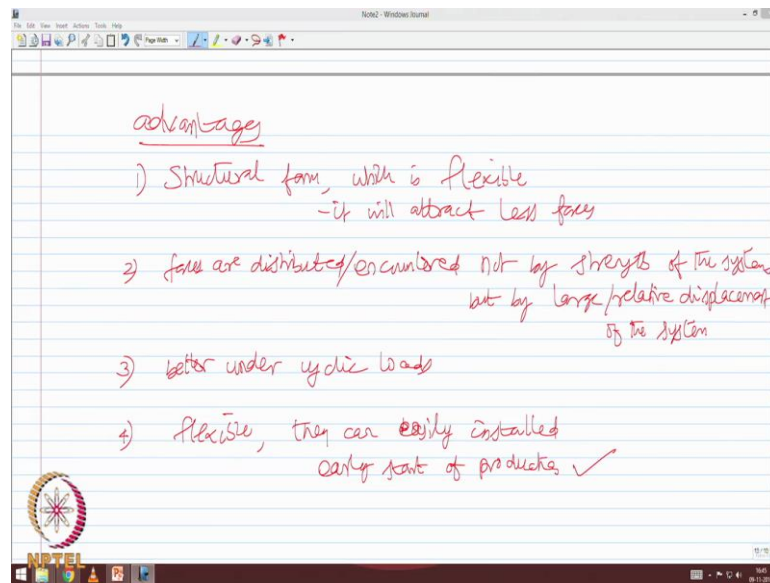 Note2 - Windows Journal
File Edit View Insert Actions Tools Help
Page Width
advantages
1) Structural form, which is flexible
- it will attract less forces
2) forces are distributed/encountered not by strength of the system
but by large/relative displacement
of the system
3) better under cyclic loads
4) flexible, they can easily installed
early start of production ✓
NPTEL